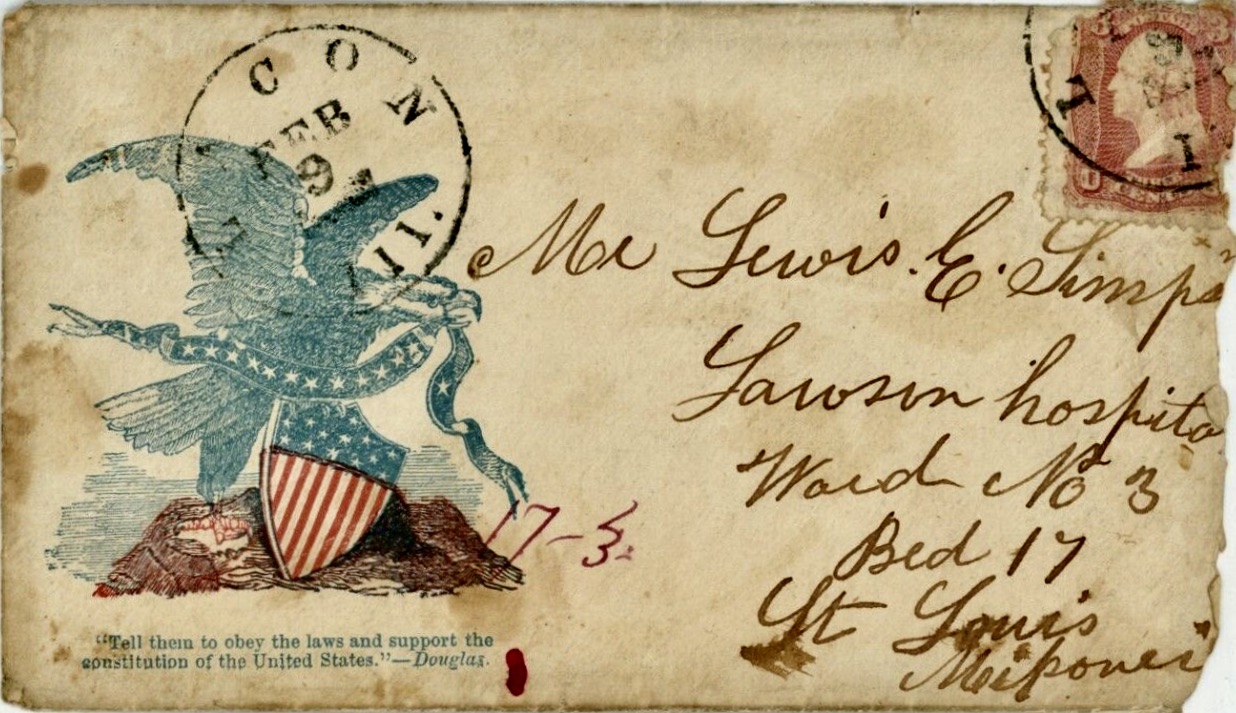 CON
FEB
9
Ill.
Mr Lewis. E. Simps
Lawson hospita
Ward No 3
Bed 17
St Louis
Missouri
17-3.
"Tell them to obey the laws and support the
constitution of the United States."—Douglas.